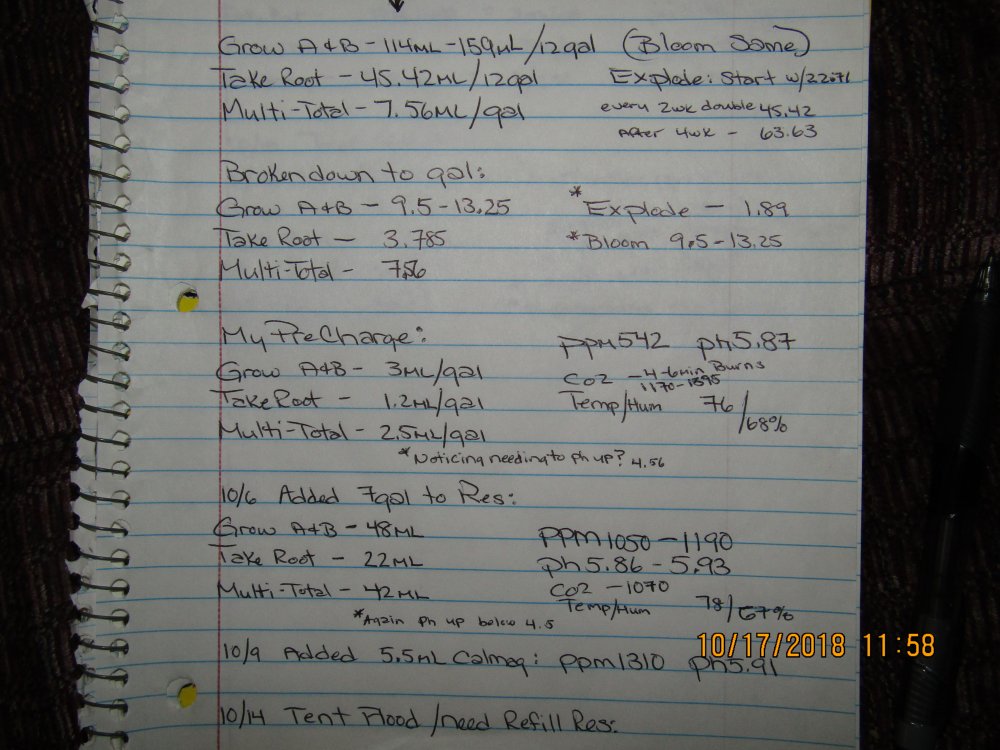 Grow A&B - 114ML - 159ML/12gal (Bloom Same)
Take Root - 45.42ML/12gal Explode: Start w/22.71
Multi-Total - 7.56ML/gal every 2wk double 45.42
After 4wk - 63.63
Broken down to gal:
Grow A&B - 9.5 - 13.25 *Explode - 1.89
Take Root - 3.785 *Bloom 9.5 - 13.25
Multi-Total - 7.56
My PreCharge: ppm542 ph5.87
Grow A&B - 3ML/gal Co2 - 4-6min Burns
1170-1395
Take Root - 1.2ML/gal Temp/Hum 76/68%
Multi-Total - 2.5ML/gal
*Noticing needing to ph up? 4.56
10/6 Added 7gal to Res:
Grow A&B - 48ML PPM1050 - 1190
Take Root - 22ML ph5.86 - 5.93
Multi-Total - 42ML Co2 - 1070
Temp/Hum 78/67%
*Again ph up below 4.5
10/17/2018 11:58
10/9 Added 5.5mL Calmag: ppm1310 ph5.91
10/14 Tent Flood/need Refill Res: